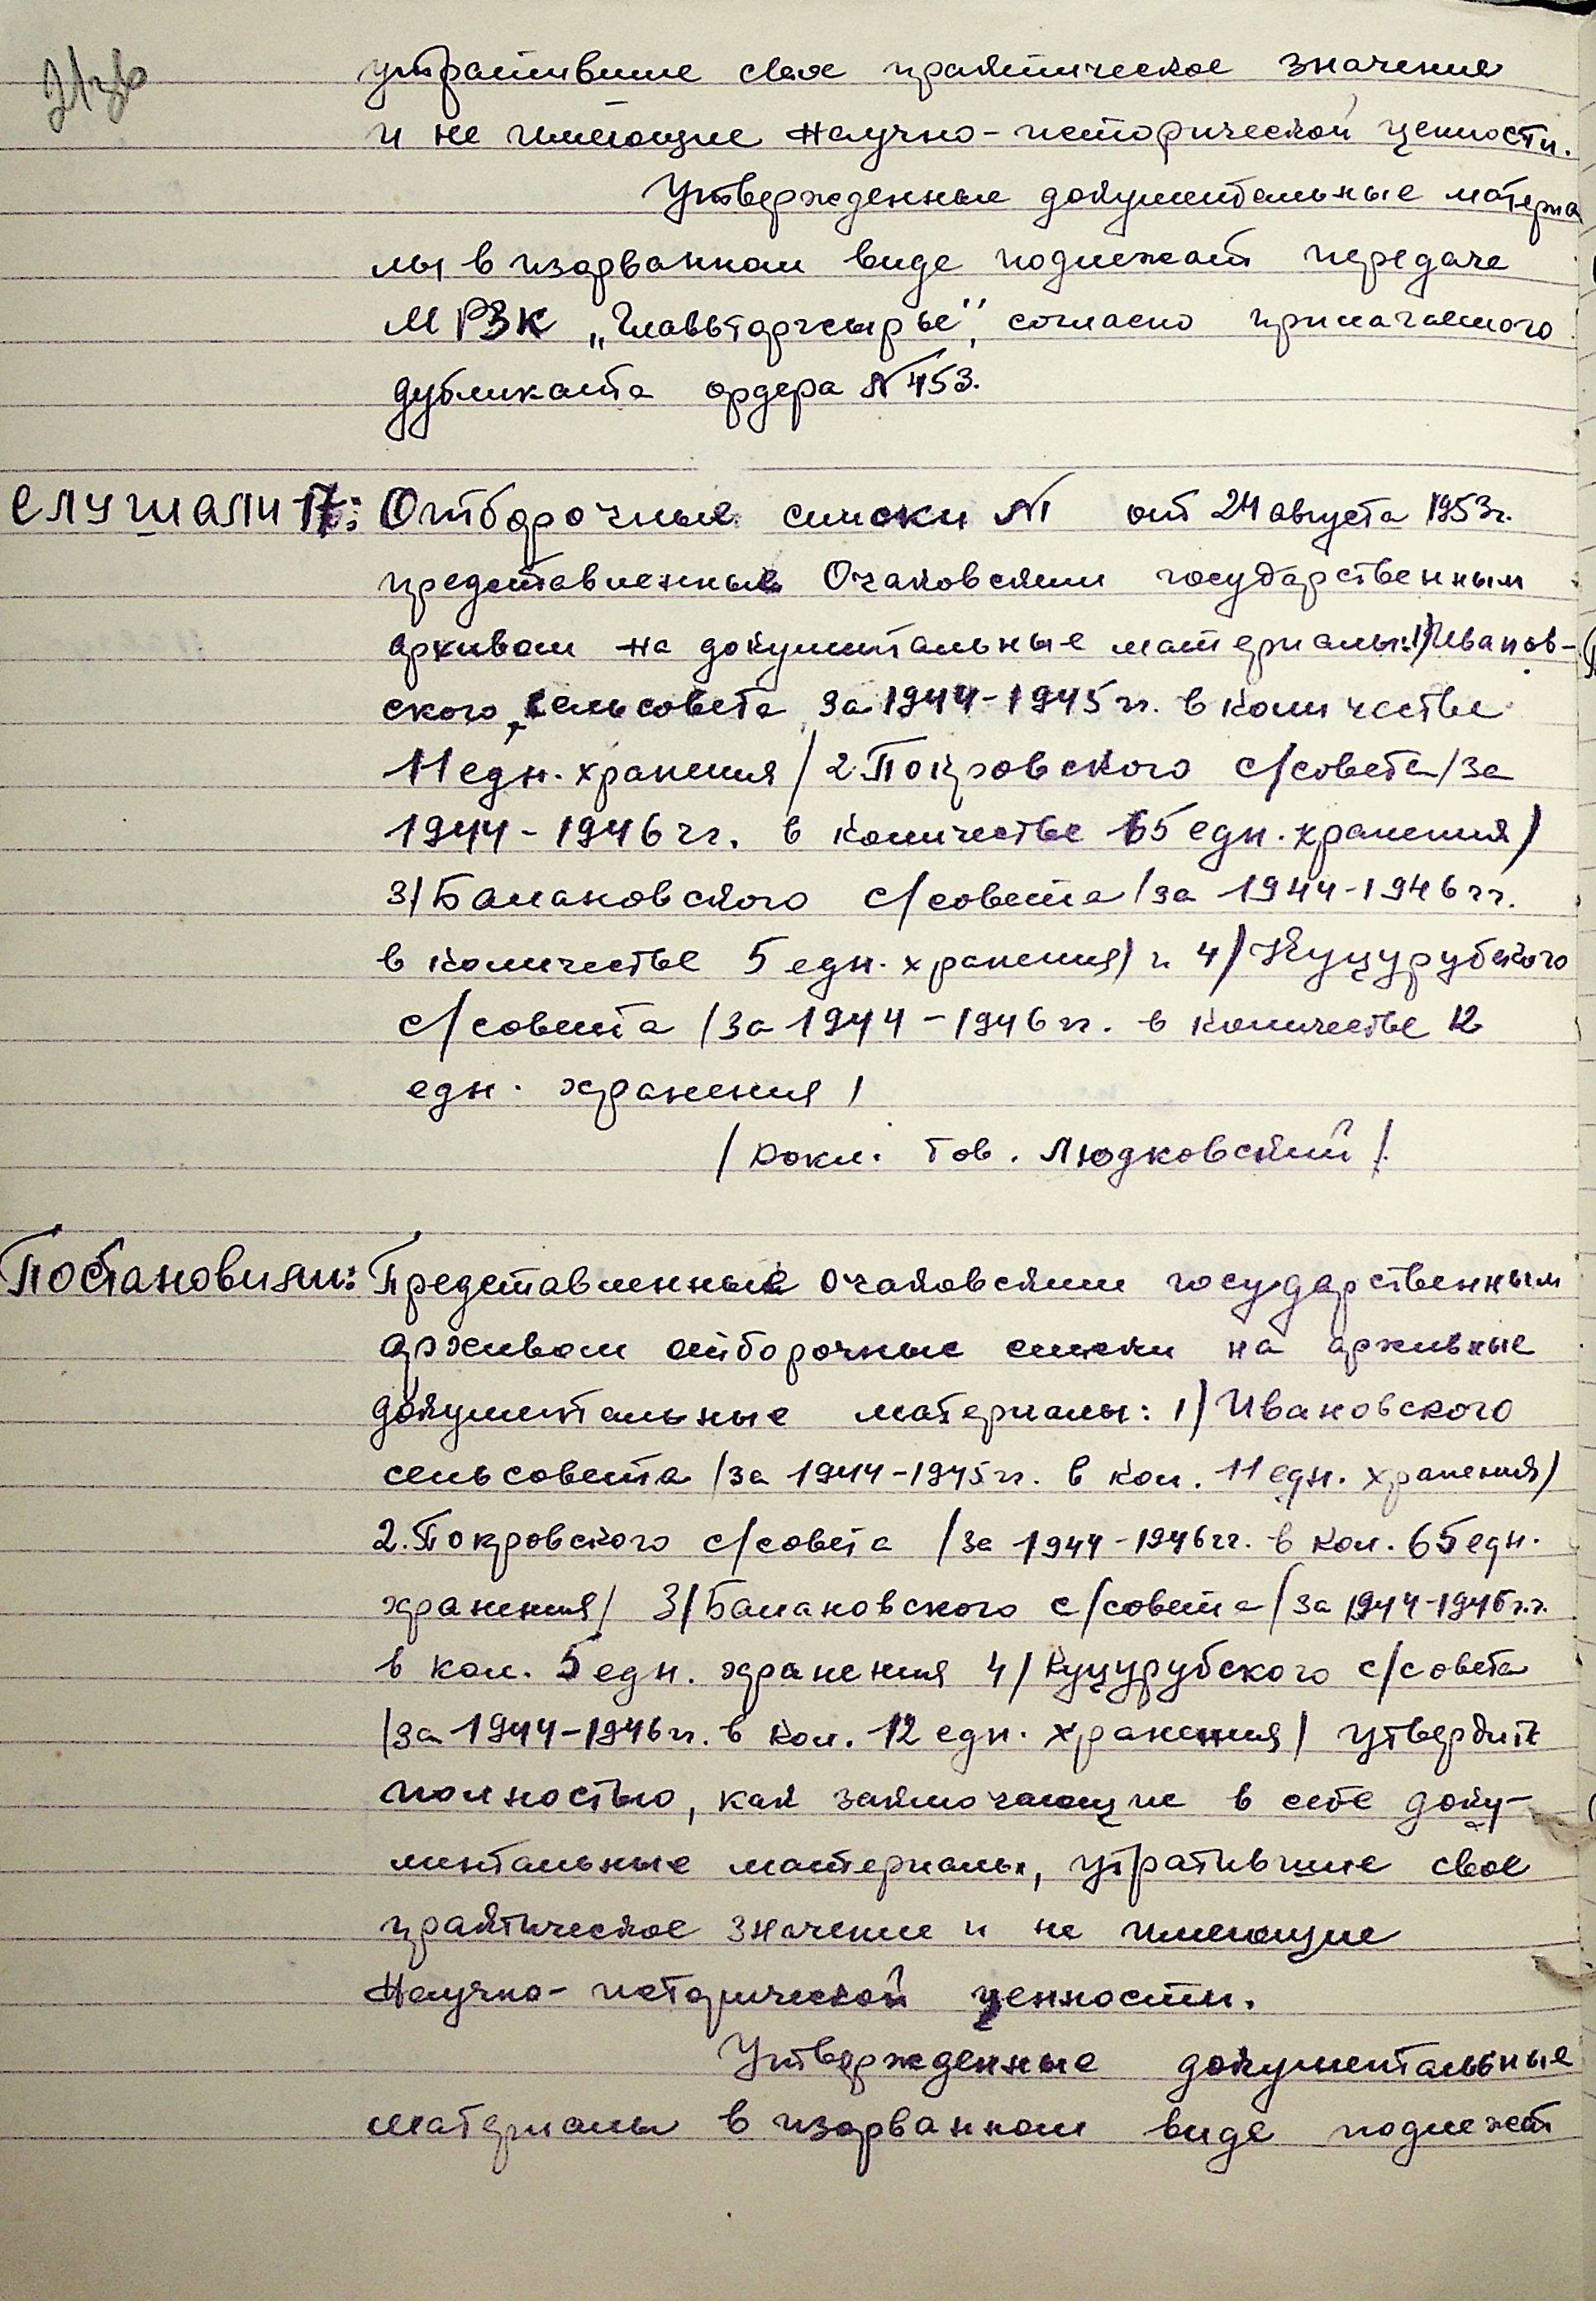 утратившие свое практическое значение
и не имеющие научно-исторической ценности.
Утвержденные документальные материа
лы в изорванном виде подлежат передаче
МРЗК „Главвторчсырье", согласно прилагаемого
дубликата ордера № 453.
Слушали 17: Отборочные списки №1 от 24 августа 1953г.
представленные Очаковским государственным
архивом на документальные материалы: 1/Иванов-
ского сельсовета за 1944-1945 гг. в количестве
11 едн. хранения/ 2.Покровского с/совета/за
1944-1946 гг. в количестве 65 едн. хранения/
3/Балановского с/совета/за 1944-1946 гг.
в количестве 5 едн. хранения/ и 4/Куцурубского
с/совета /за 1944-1946 гг. в количестве 12
едн. хранения/
/Докл. тов. Людковский/.
Постановили: Представленные Очаковским государственным
архивом отборочные списки на архивные
документальные материалы: 1/Ивановского
сельсовета /за 1944-1945 гг. в кол. 11 едн. хранения/
2.Покровского с/совета /за 1944-1946 гг. в кол. 65 едн.
хранения/ 3/Балановского с/совета/за 1944-1946 г.г.
в кол. 5 едн. хранения 4/Куцурубского с/совета
/за 1944-1946 гг. в кол. 12 едн. хранения/ утвердить
полностью, как заключающие в себе доку-
ментальные материалы, утратившие свое
практическое значение и не имеющие
научно-исторической ценности.
Утвержденные документальные
материалы в изорванном виде подлежат